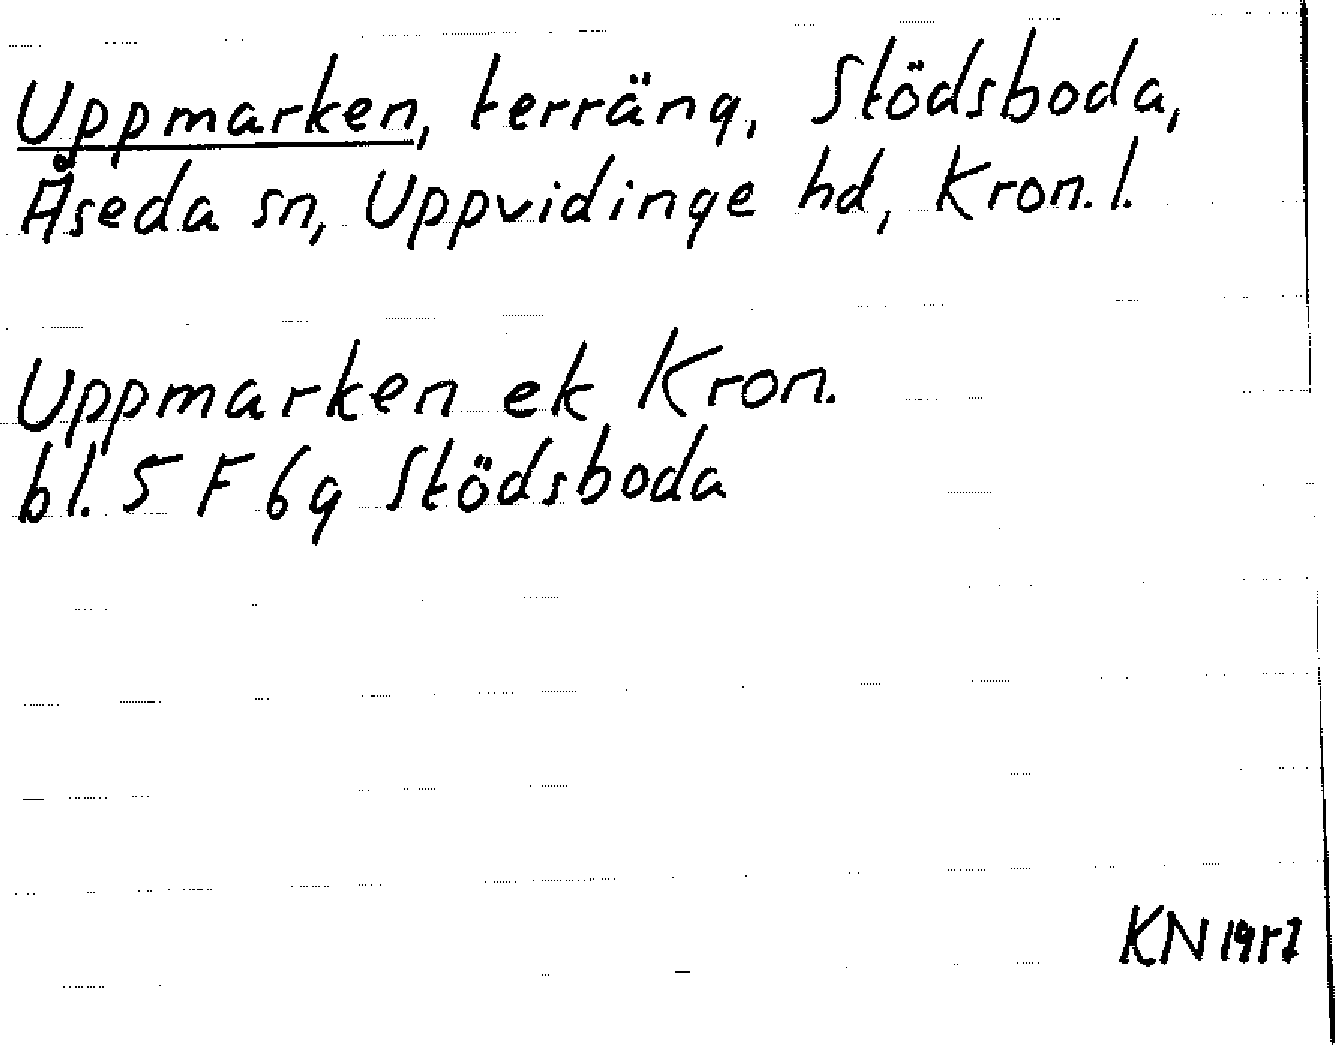 Uppmarken, terräng, Stödsboda,
Åseda sn, Uppvidinge hd, Kron. l.
Uppmarken ek Kron.
bl. 5 F 6g Stödsboda
KN